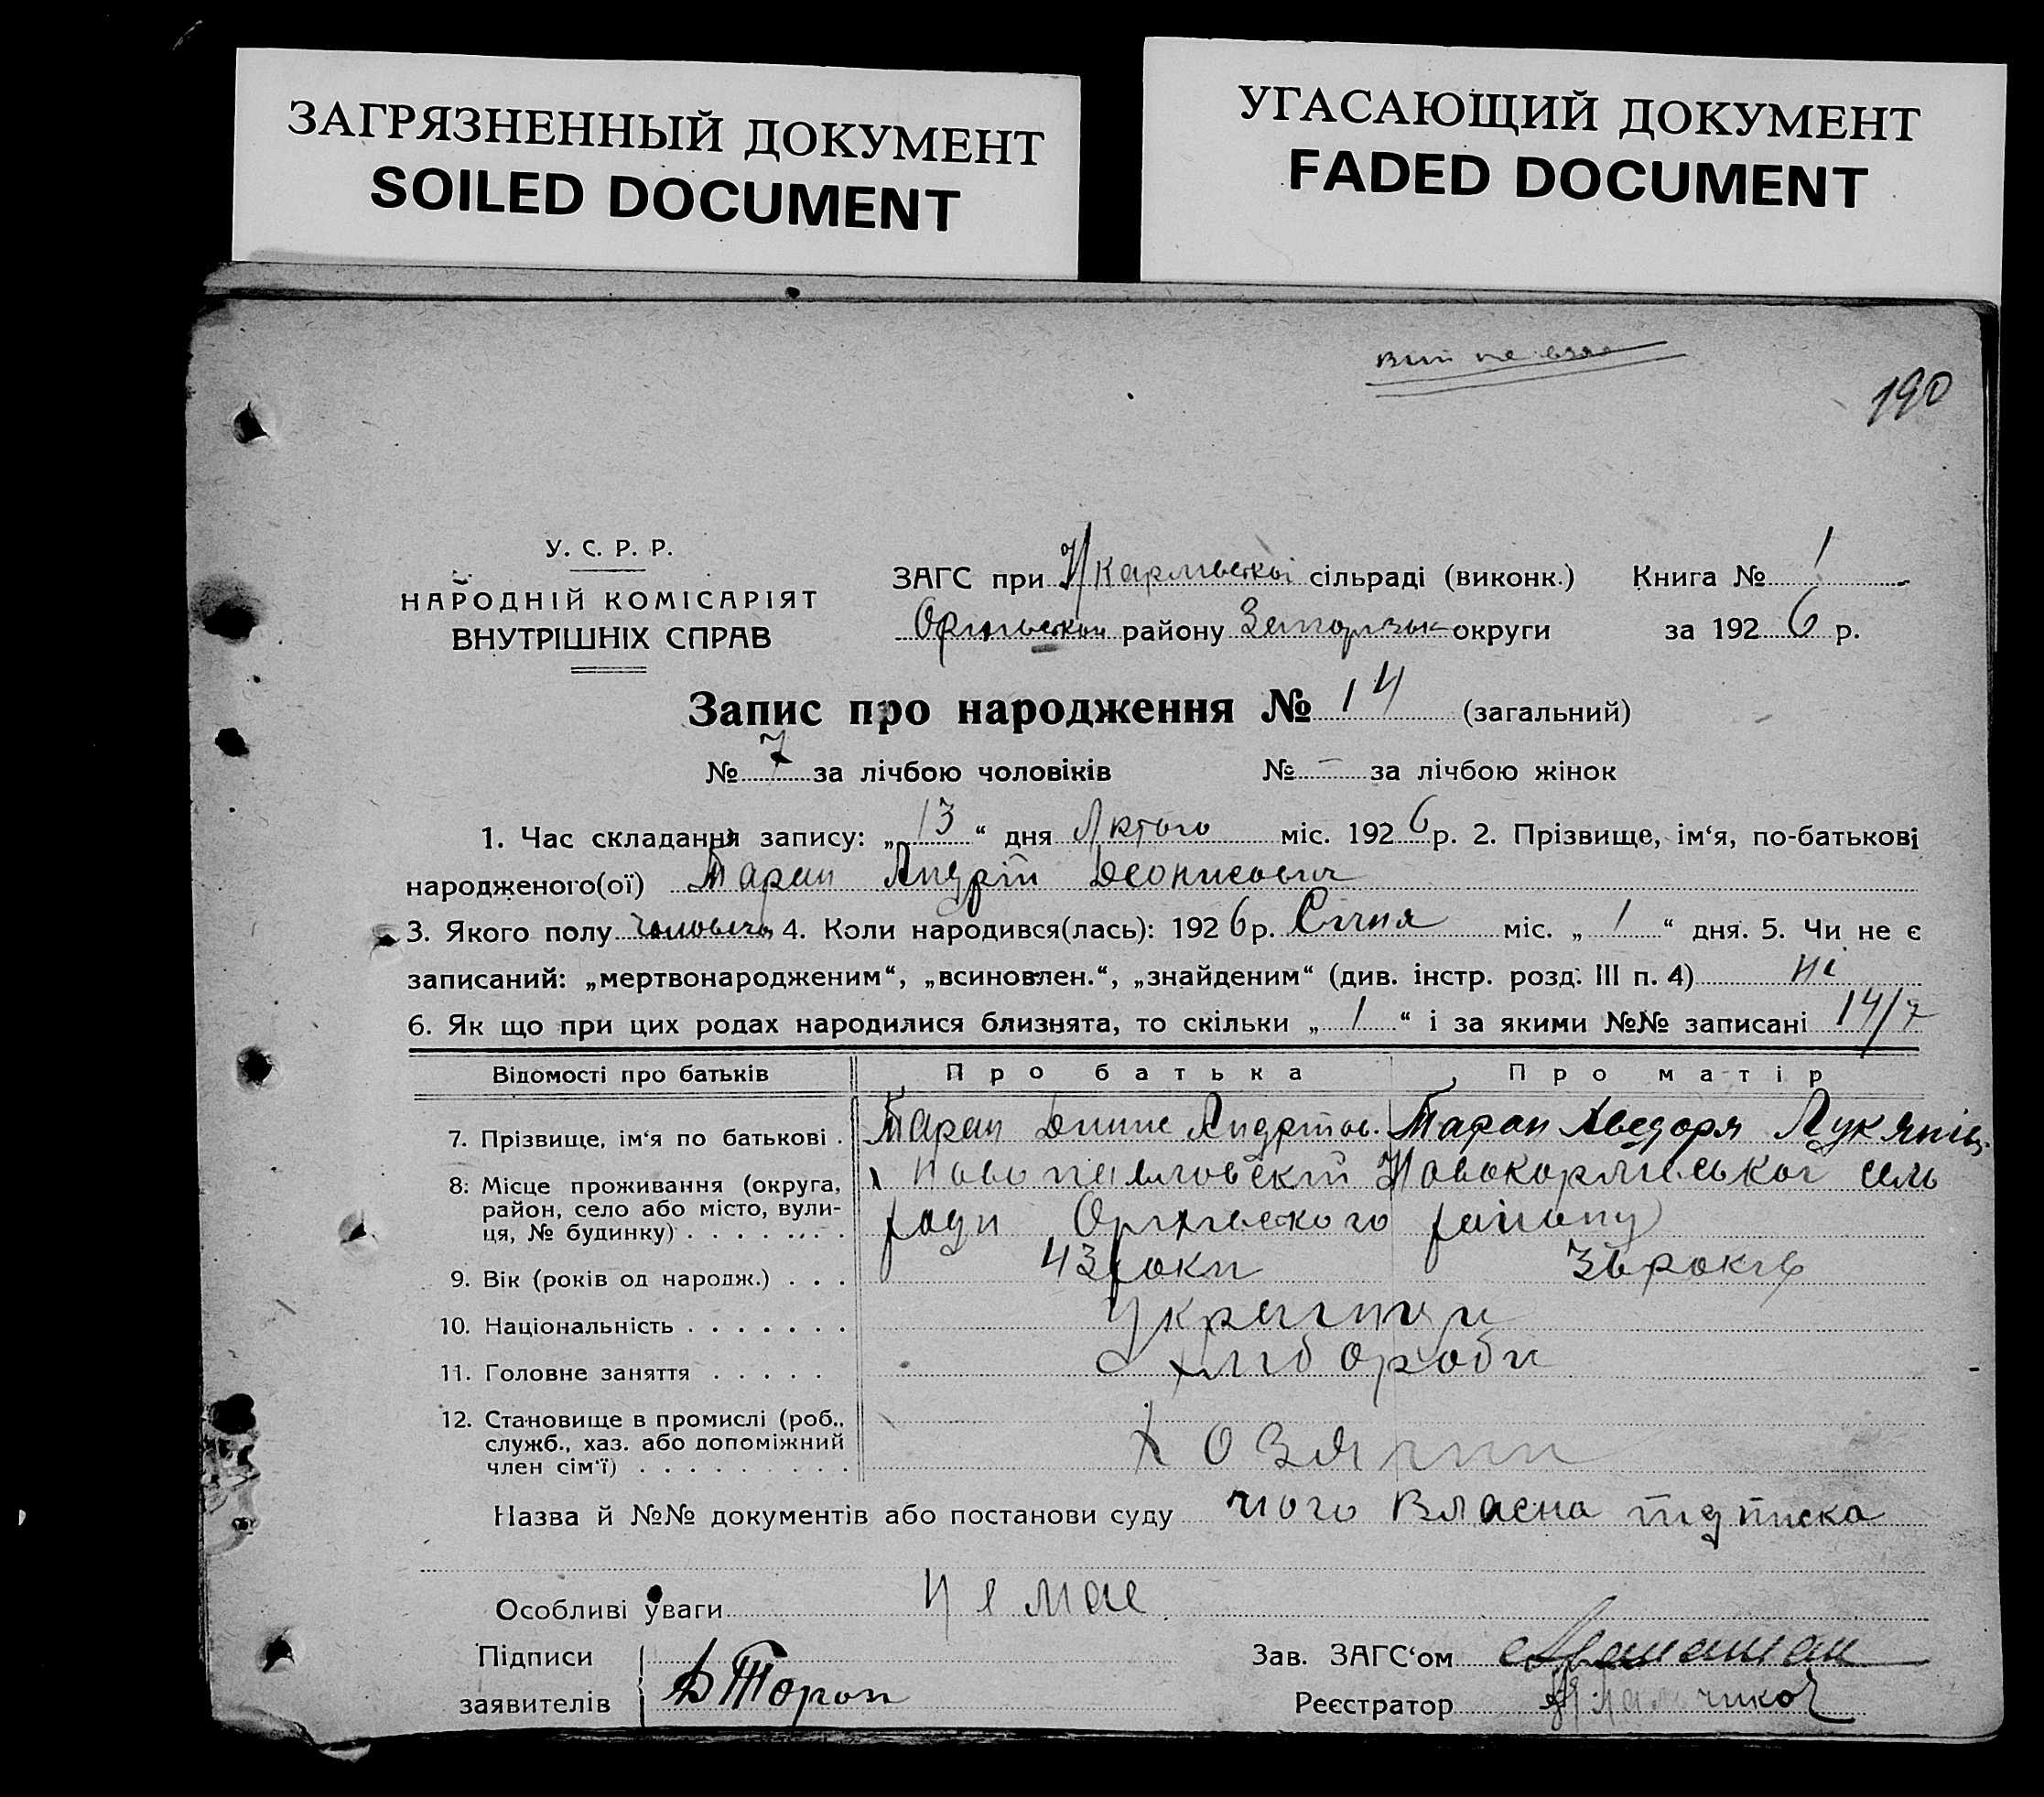 ЗАГРЯЗНЕННЫЙ ДОКУМЕНТ
SOILED DOCUMENT
УГАСАЮЩИЙ ДОКУМЕНТ
FADED DOCUMENT
190
У. С. Р. Р.
НАРОДНІЙ КОМІСАРІЯТ
ВНУТРІШНІХ СПРАВ
ЗАГС при сільраді (виконк.) Книга № 1
району округи за 1926 р.
Запис про народження № 14 (загальний)
№ 7 за лічбою чоловіків № – за лічбою жінок
1. Час складання запису: „13“ дня Лютого міс. 1926 р. 2. Прізвище, ім‘я, по-батькові
народженого(ої) Таран Андрій Деонисович
3. Якого полу 4. Коли народився(лась): 1926 р. Січня міс. „1“ дня. 5. Чи не є
записаний: „мертвонародженим“, „всиновлен.“, „знайденим“ (див. інстр. розд. III п. 4) ні
6. Як що при цих родах народилися близнята, то скільки „1“ і за якими №№ записані 14/7
Відомості про батьків Про батька Про матір
7. Прізвище, ім‘я по батькові . Таран Денис Андрійов. Таран Хведоря
8. Місце проживання (округа, район, село або місто, вулиця, № будинку) . . . . . . . . ради району
9. Вік (років од народж.) . . . 43 роки років
10. Національність . . . . . . . Українци
11. Головне заняття . . . . . Хлібороби
12. Становище в промислі (роб., служб., хаз. або допоміжний член сім‘ї) . . . . . . . . . Хозяїни
Назва й №№ документів або постанови суду його власна підписка
Особливі уваги Немае
Підписи заявителів Д Торон
Зав. ЗАГС‘ом
Реєстратор